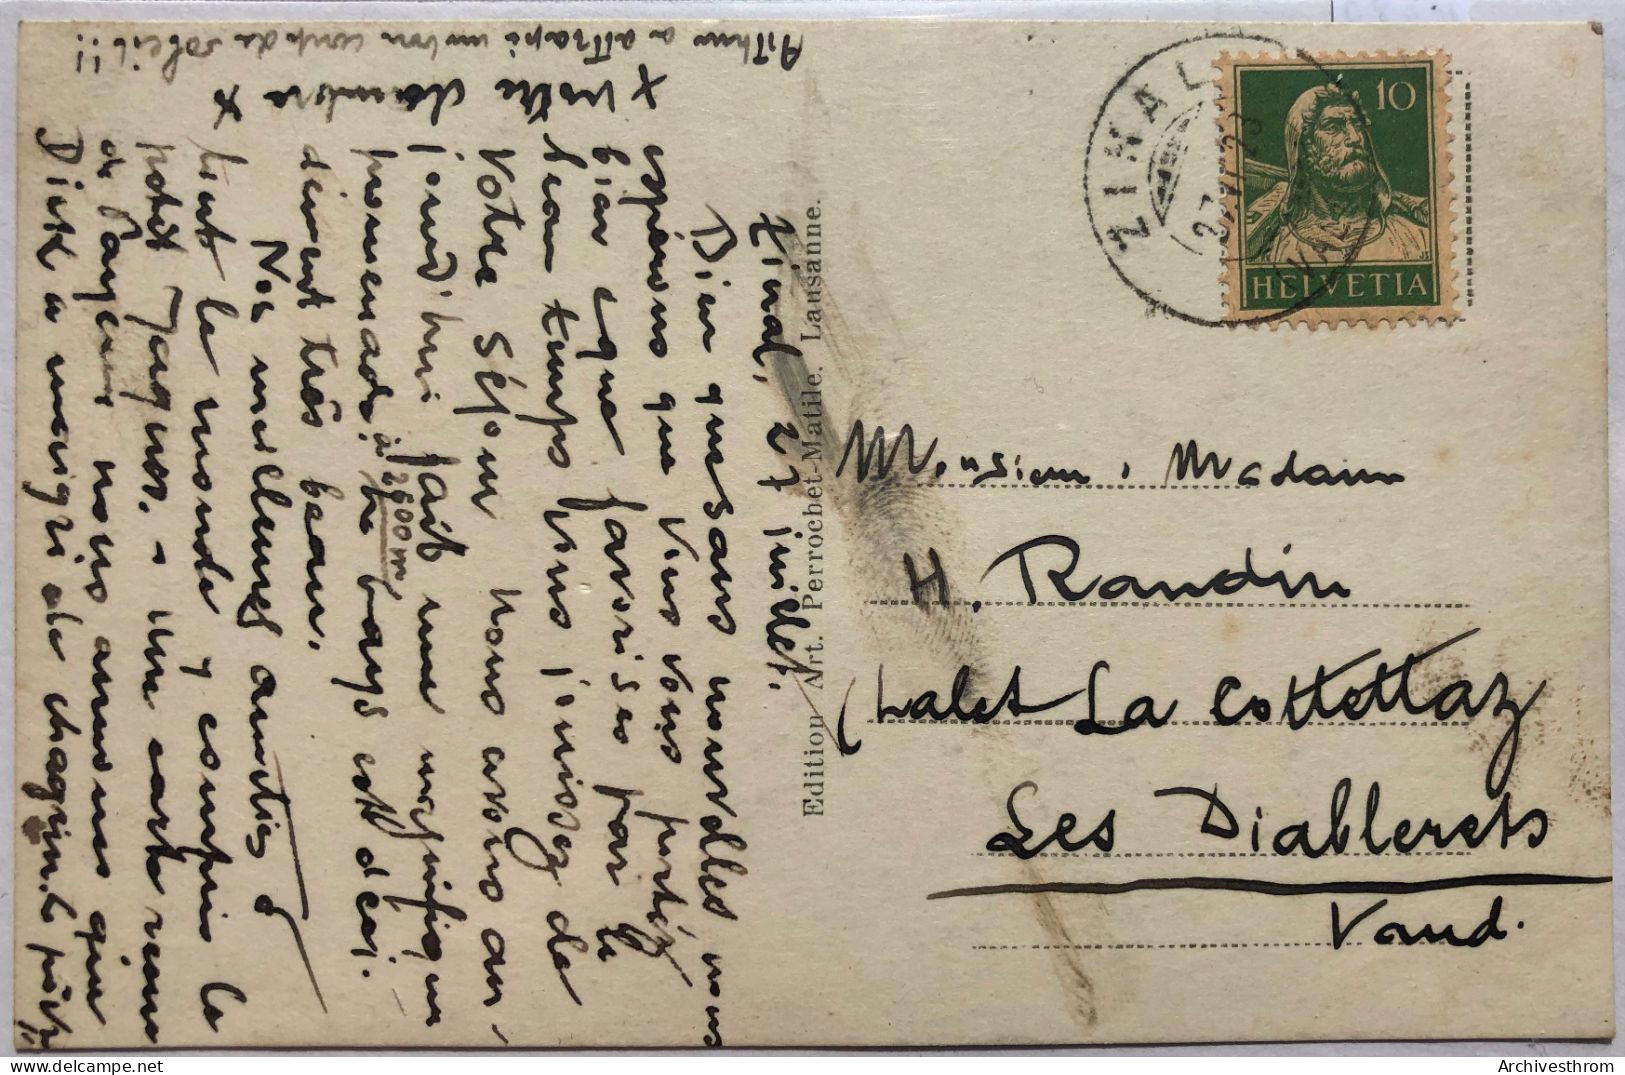 Zinal, 27 juillet.
Bien que sans nouvelles nous
espérons que vous vous portez
bien et que favorisés par le
beau temps vous jouissez de
Votre séjour. Nous avons au-
jourd'hui fait une magnifique
promenade à 2800 m le pays est
divinement très beau.
Nos meilleures amitiés à
tout le monde y compris le
petit Jacques. Une carte venue
de Payerne nous annonce que
Dick a maigri de chagrin. le
x Votre chambre x
Arthur a attrapé un bon coup de soleil!!
Edition Art. Perrochet-Matile. Lausanne.
ZINAL
10
HELVETIA
Monsieur, Madame
H. Randin
Chalet La Cottettaz
Les Diablerets
Vaud.
Archivesthrom